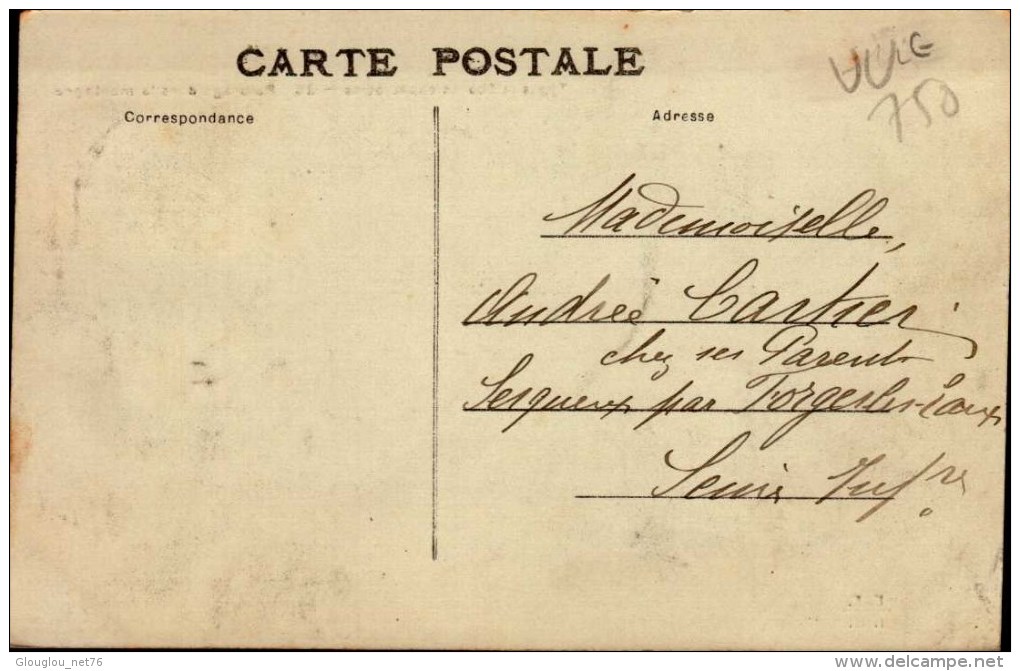 CARTE POSTALE
Correspondance
Adresse
750
Mademoiselle
Andrée Cartier
chez ses Parents
Serqueux par Forges-les-Eaux
Seine Infre
Glouglou_net76
delcampe.net